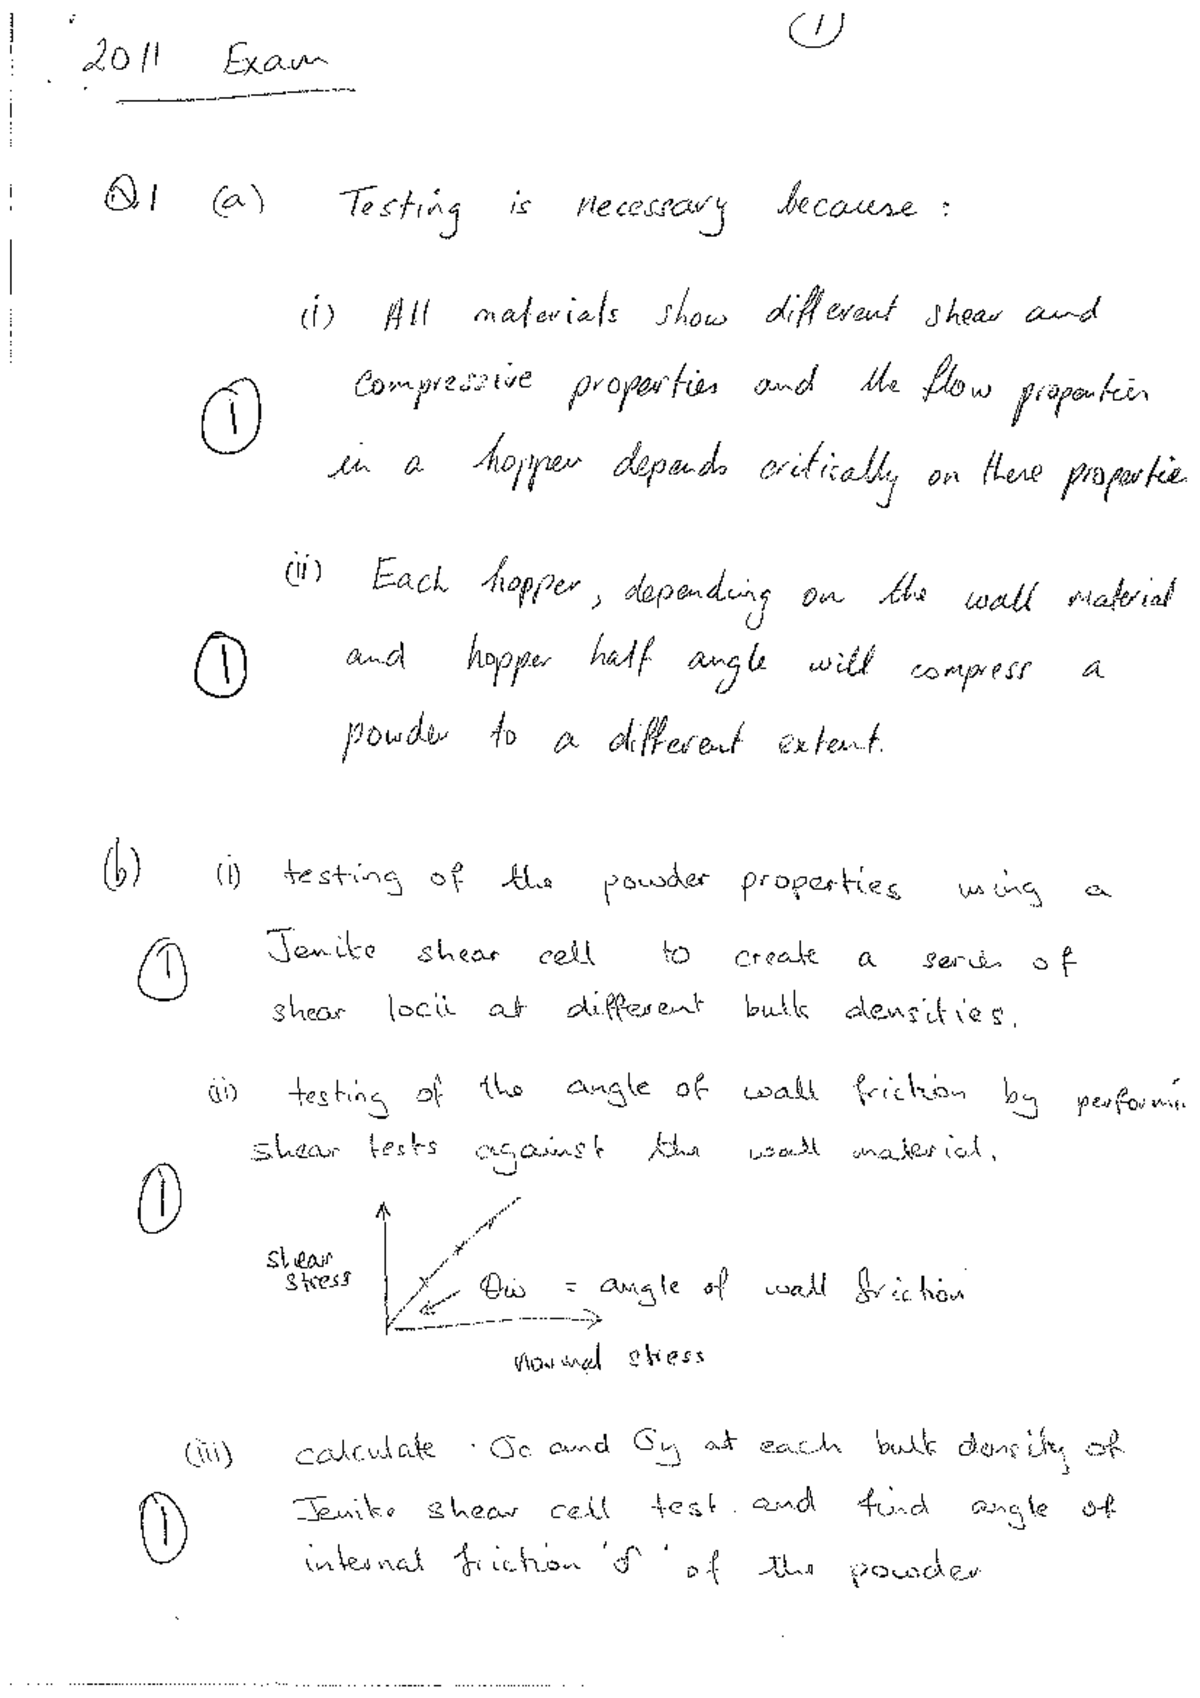 1
2011 Exam
Q.1 (a) Testing is necessary because :
(i) All materials show different shear and
compressive properties and the flow properties
1
in a hopper depends critically on these propertie
(ii) Each hopper, depending on the wall material
1
and hopper half angle will compress a
powder to a different extent.
(b) (i) testing of the powder properties using a
1
Jenike shear cell to create a series of
shear locii at different bulk densities.
(ii) testing of the angle of wall friction by performi
shear tests against the wall material.
1
shear
stress
Θw = angle of wall friction
normal stress
(iii) calculate σc and σy at each bulk density of
1
Jenike shear cell test and find angle of
internal friction 'δ' of the powder